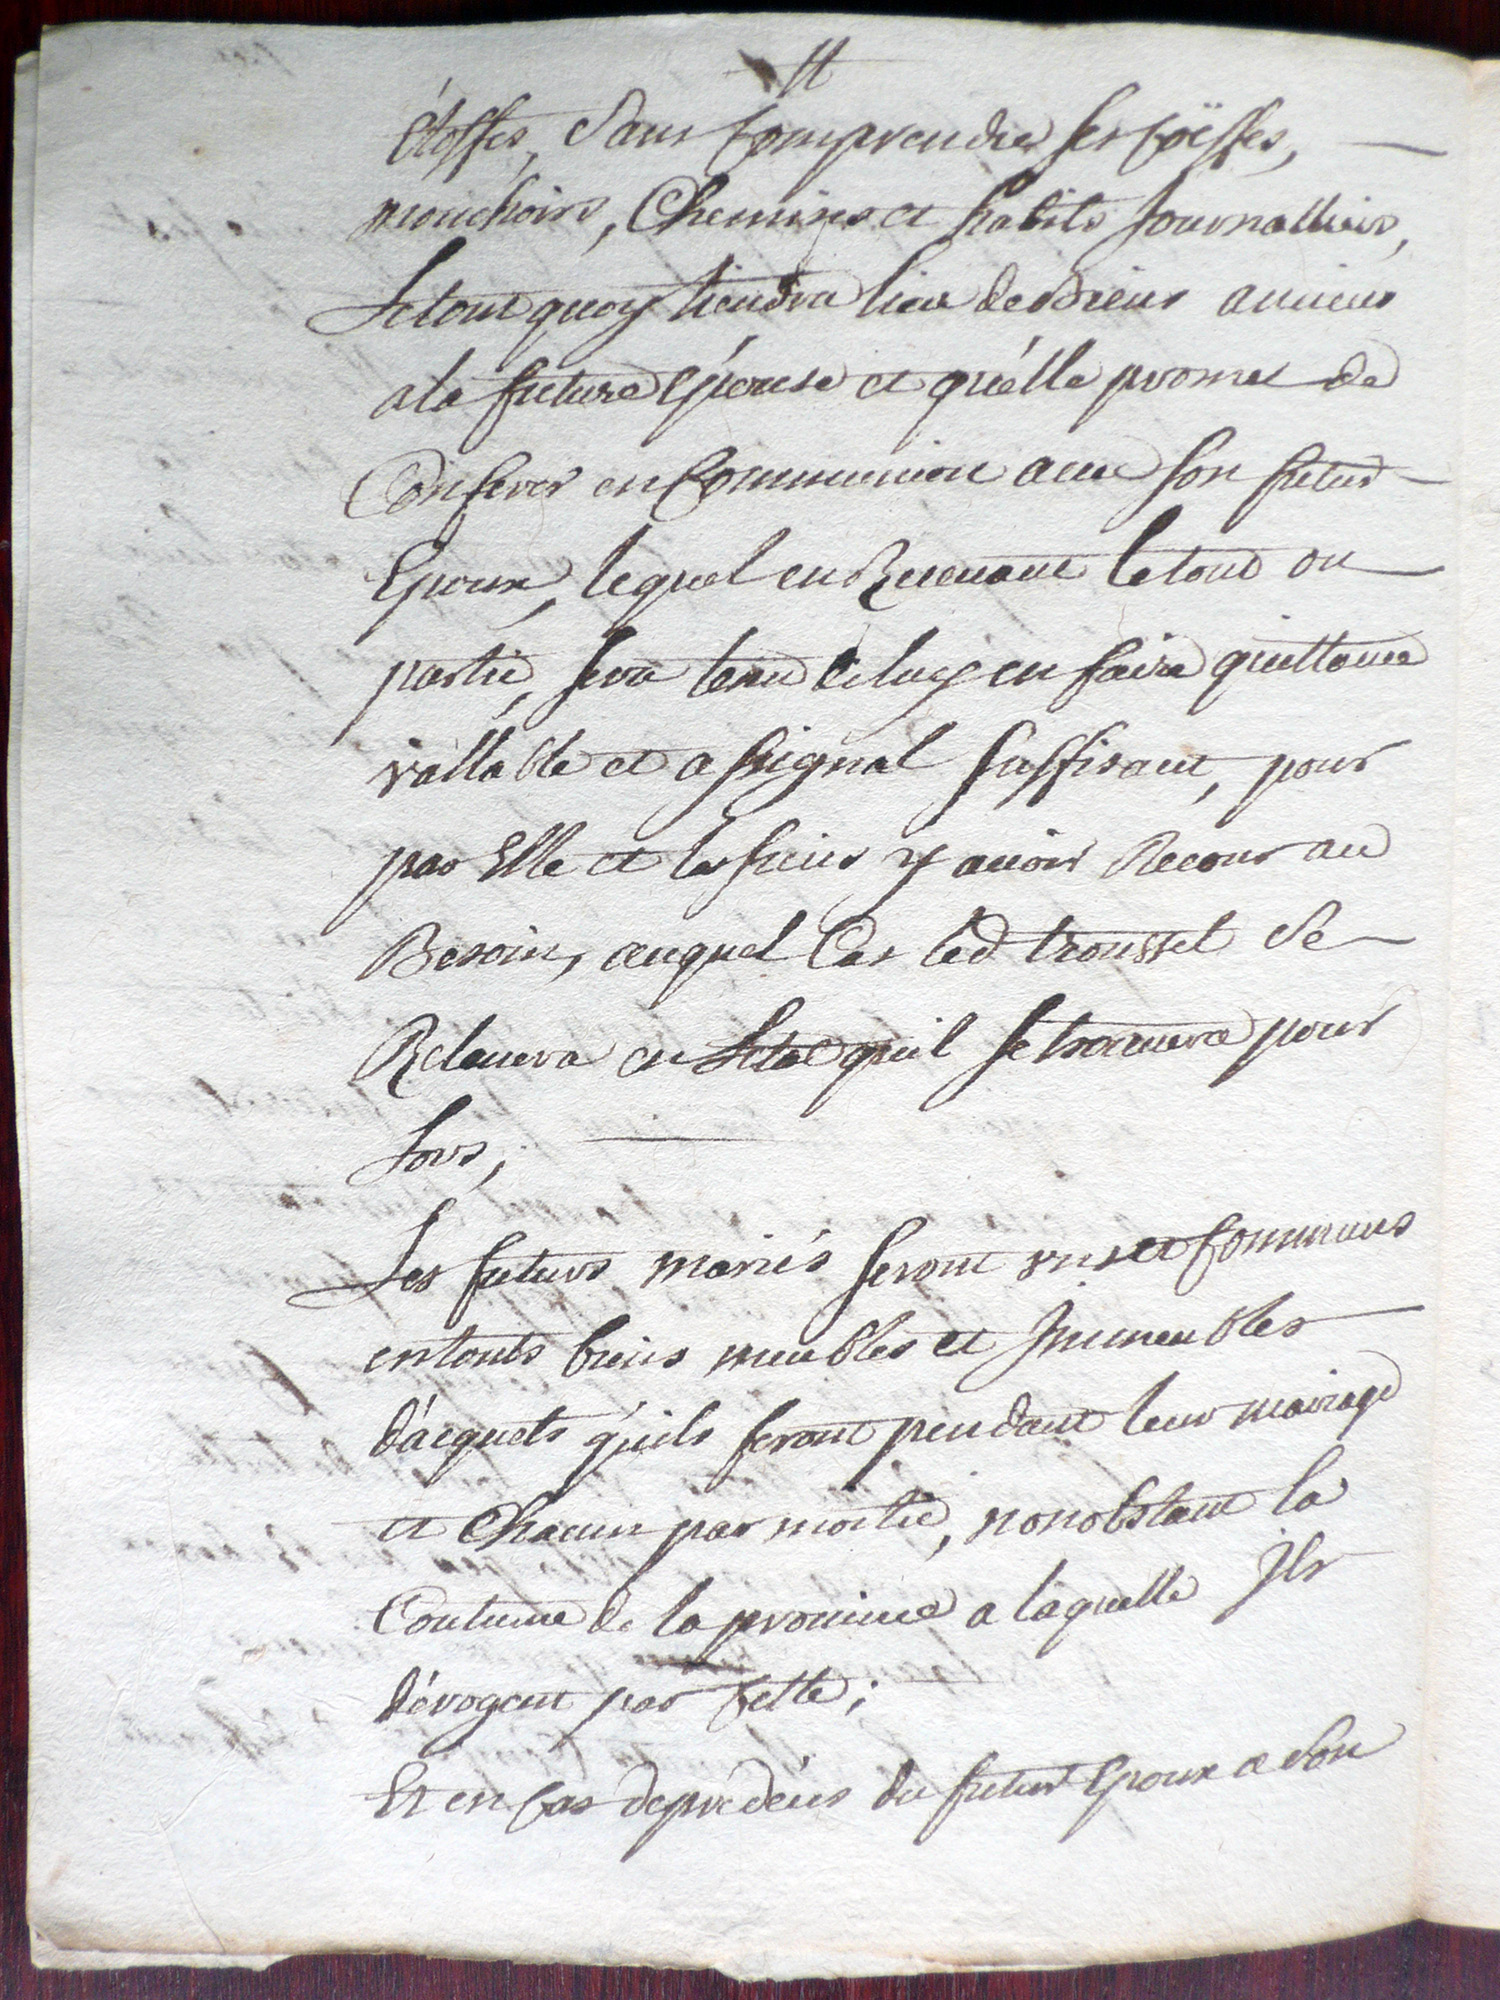 étoffes, Sans Comprendre ses Coëffes,
mouchoirs, Chemises et habits Journalliers,
Le tout quoy tiendra lieu de Biens anciens
a la future Epouse et qu'élle promet de
Conferer en Communion avec son futur
Epoux, lequel en Recevant le tout ou
partie, sera tenu de luy en faire quittance
vallable et assignal suffisant, pour
par Elle et les siens y avoir Recour au
Besoin, auquel Cas led trousset Se
Relevera en L'etat quil se trouvera pour
Lors,
Les futurs mariés seront unis et Communs
en touts biens meubles et Immeubles
d'acquets qu'ils feront pendant leur mariage
et Chacun par moitié, nonobstant la
Coutume de la province a laquelle Ils
dérogent par Cette;
Et en Cas de prédécés du futur Epoux a Son